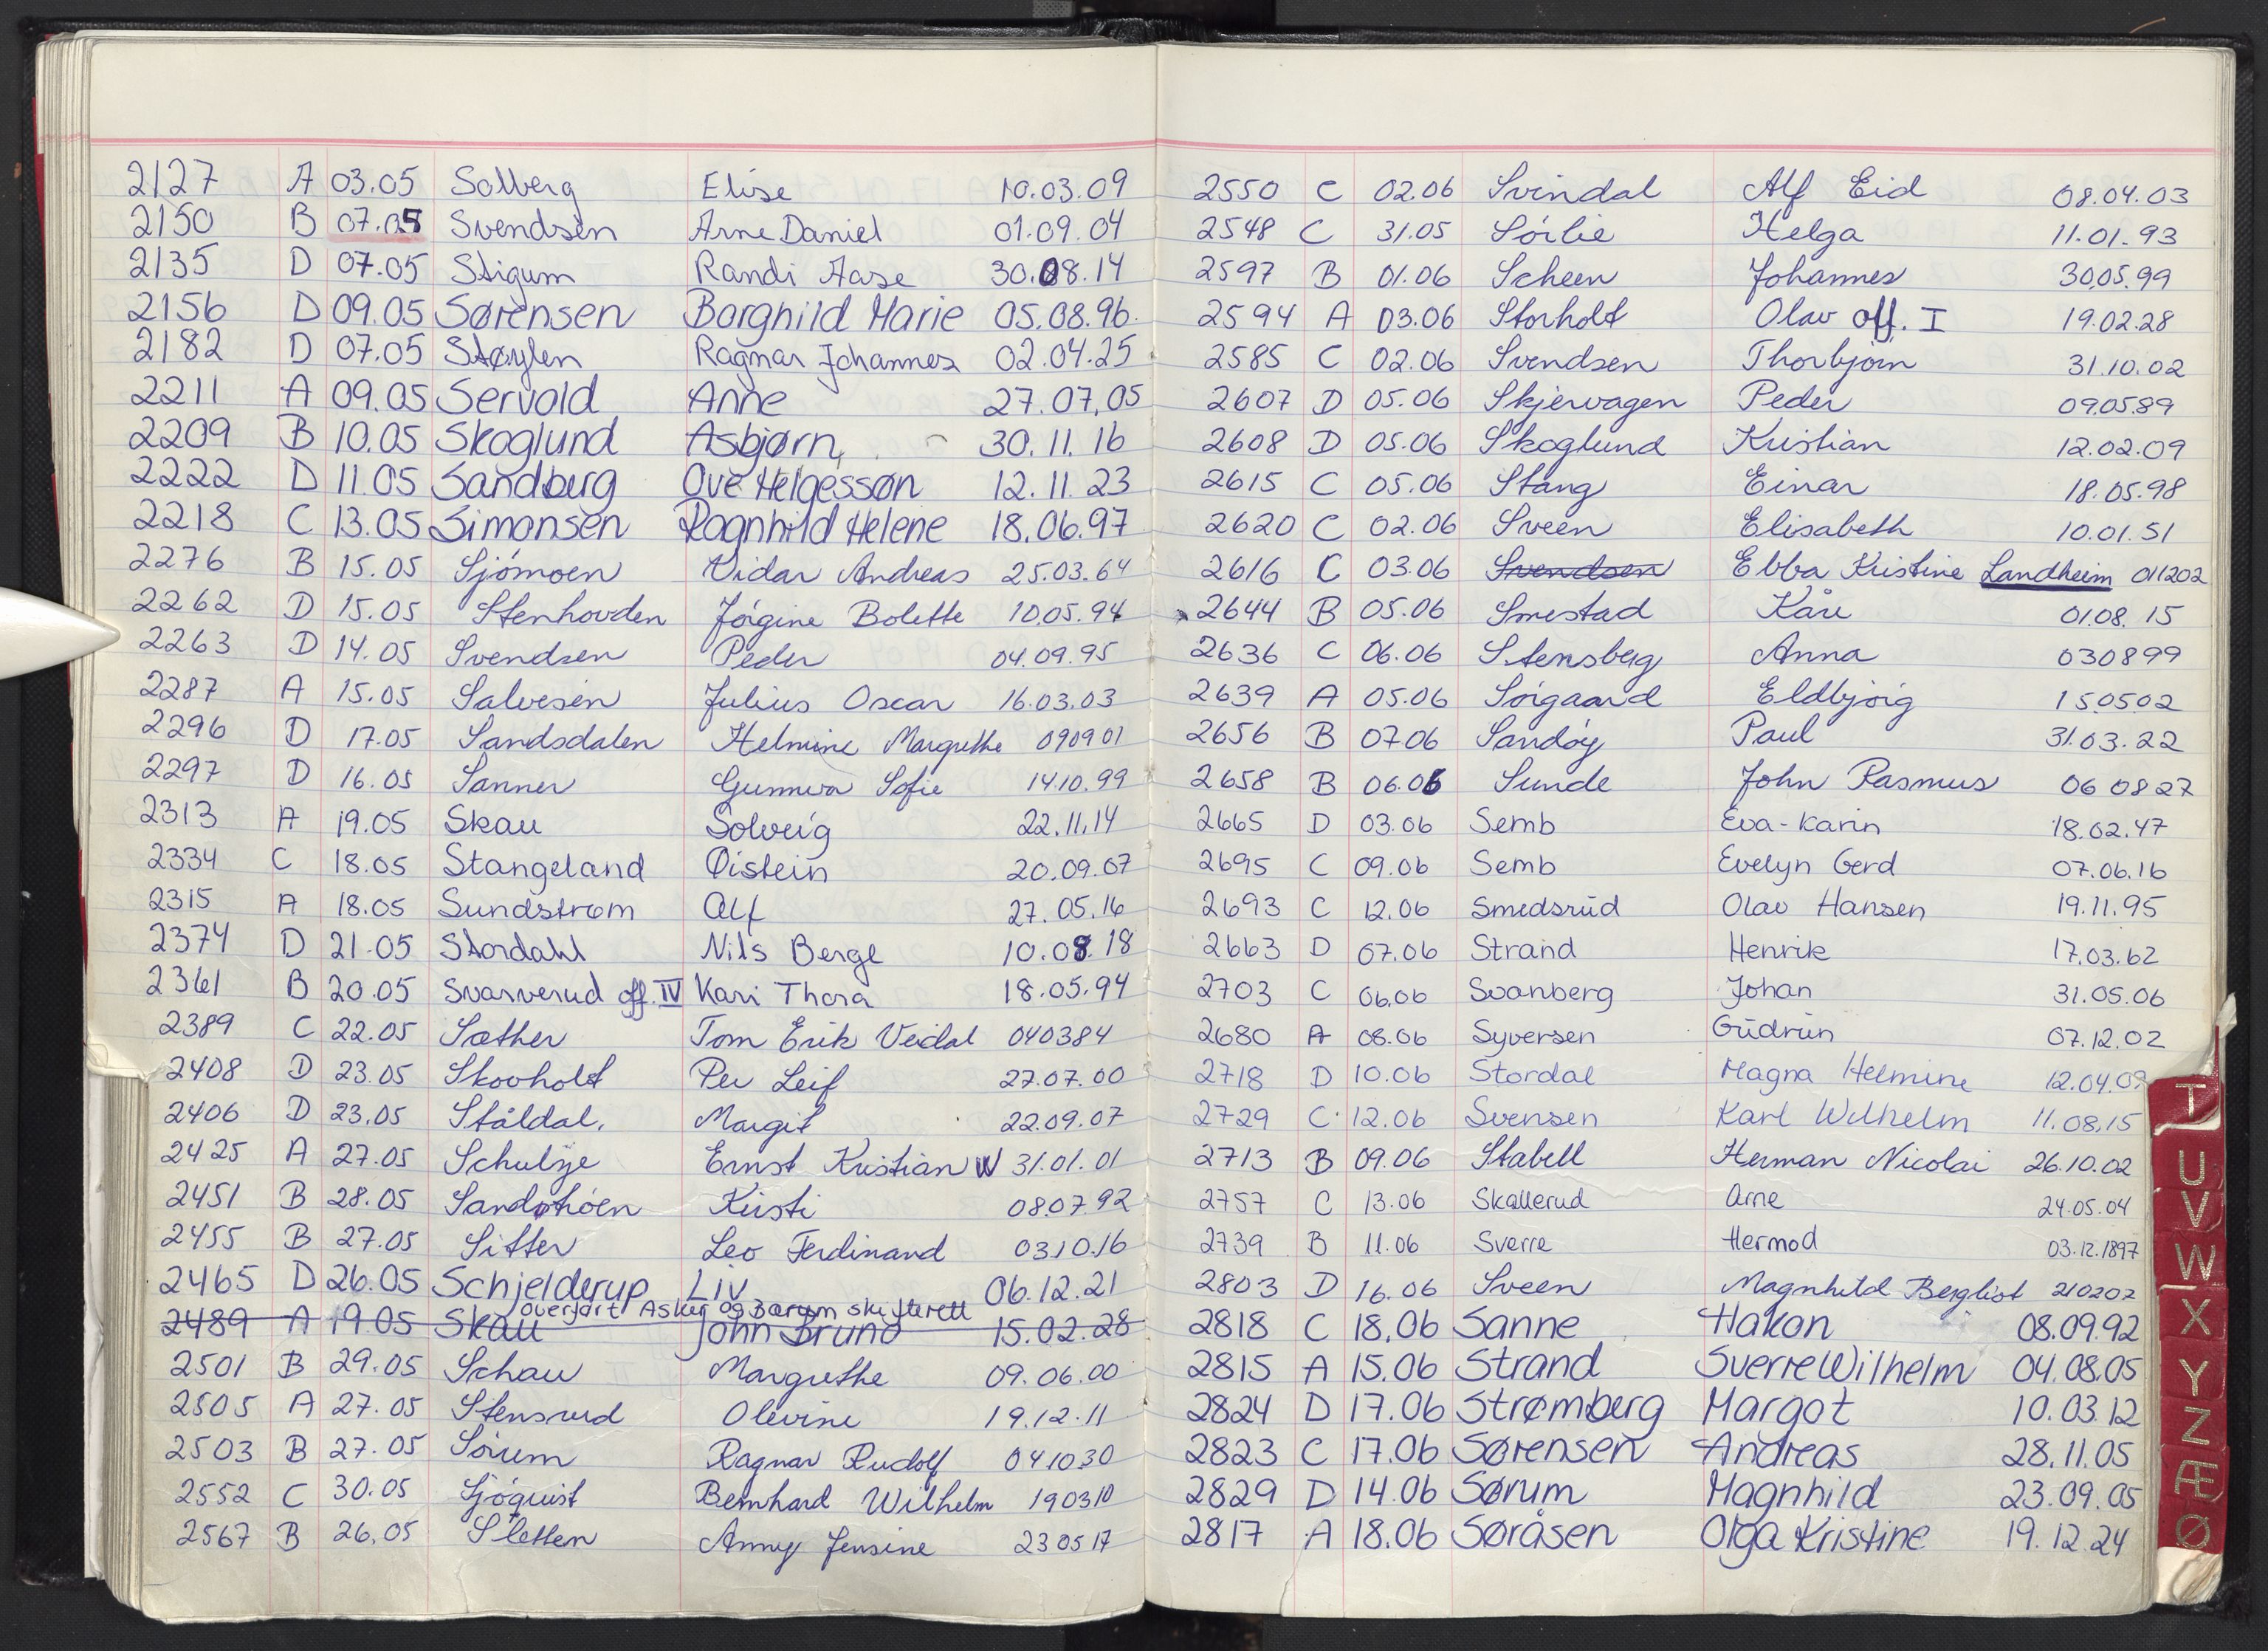 2127 A 03.05 Solberg Elise 10.03.09
2150 B 07.05 Svendsen Arne Daniel 01.09.04
2135 D 07.05 Stigum Randi Aase 30.08.14
2156 D 09.05 Sørensen Borghild Marie 05.08.96.
2182 D 07.05 Støylen Ragnar Johannes 02.04.25
2211 A 09.05 Servold Anne 27.07.05
2209 B 10.05 Skoglund Asbjørn 30.11.16
2222 D 11.05 Sandberg Ove Helgessøn 12.11.23
2218 C 13.05 Simonsen Ragnhild Helene 18.06.97
2276 B 15.05 Sjómoen Vidar Andreas 25.03.64
2262 D 15.05 Stenhovden Jórgine Bolette 10.05.94
2263 D 14.05 Svendsen Peder 04.09.95
2287 A 15.05 Salvesen Julius Oscar 16.03.03
2296 D 17.05 Sandsdalen Helmine Margrethe 090901
2297 D 16.05 Sanner Gunnvor Sofie 1410.99
2313 A 19.05 Skau Solveig 22.11.14
2334 C 18.05 Stangeland Øistein 20.09.07
2315 A 18.05 Sundstrøm Alf 27.05.16
2374 D 21.05 Stordahl Nils Berge 10.08.18
2361 B 20.05 Svarverud off. IV Kari Thora 18.05.94
2389 C 22.05 Sæther Tom Erik Veidal 040384
2408 D 23.05 Skovholt Per Leif 27.07.00
2406 D 23.05 Ståldal. Margit 22.09.07
2425 A 27.05 Ernst Kristian W 31.01.01
2451 B 28.05 Kirsti 0807.92
2455 B 27.05 Sitter Leo Ferdinand 0310.16
2465 D 26.05 Schjelderup Liv 06.12.21
overført Asker og Bærum skifterett
2489 A 19.05 Skau John Bruno 15.02.28
2501 B 29.05 Schau Margrethe 09.06.00
2505 A 27.05 Stensrud Olevine 19.12.11
2503 B 27.05 Sórum Ragnar Rudolf 041030
2552 C 30.05 Sjóquist Bernhard Wilhelm 190310
2567 B 26.05 Sletten Anny Jensine 230517
2550 C 02.06 Svindal Alf Eid 08.04.03
2548 C 31.05 Sórlie Helga 11.01.93
2597 B 01.06 Scheen Johannes 30.05.99
2594 A 03.06 Storholt Olav off. I 19.02.28
2585 C 02.06 Svendsen Thorbjórn 31.10.02
2607 D 05.06 Skjervagen Peder 09.05.89
2608 D 05.06 Skoglund Kristian 12.02.09
2615 C 05.06 Stang Einar 18.05.98
2620 C 02.06 Sveen Elisabeth 10.01.51
2616 C 03.06 Svendsen Ebba Kristine Landheim 011202
2644 B 05.06 Smestad Kåre 01.08.15
2636 C 06.06 Stensberg Anna 030899
2639 A 05.06 Sórgaard Eldbjórg 150502
2656 B 07.06 Sandóy Paul 31.03.22
2658 B 06.06 Sunde John Rasmus 060827
2665 D 03.06 Semb Eva-Karin 18.02.47
2695 C 09.06 Semb Evelyn Gerd 07.06.16
2693 C 12.06 Smedsrud Olav Hansen 19.11.95
2663 D 07.06 Strand Henrik 17.03.62
2703 C 06.06 Svanberg Johan 31.05.06
2680 A 08.06 Syversen Gudrun 07.12.02
2718 D 10.06 Stordal Magna Helmine 12.04.09
2729 C 12.06 Svensen Karl Wilhelm 11.08.15
2713 B 09.06 Stabell Herman Nicolai 26.10.02
2757 C 13.06 Skallerud Arne 24.05.04
2739 B 11.06 Sverre Hermod 03.12.1897
2803 D 16.06 Sveen Magnhild Bergliot 210202
2818 C 18.06 Sanne Håkon 08.09.92
2815 A 15.06 Strand Sverre Wilhelm 04.08.05
2824 D 17.06 Strømberg Margot 10.03.12
2823 C 17.06 Sørensen Andreas 28.11.05
2829 D 14.06 Sørum Magnhild 23.09.05
2817 A 18.06 Søråsen Olga Kristine 19.12.24
T
U
V
W
X
Y
Z
Æ
Ø